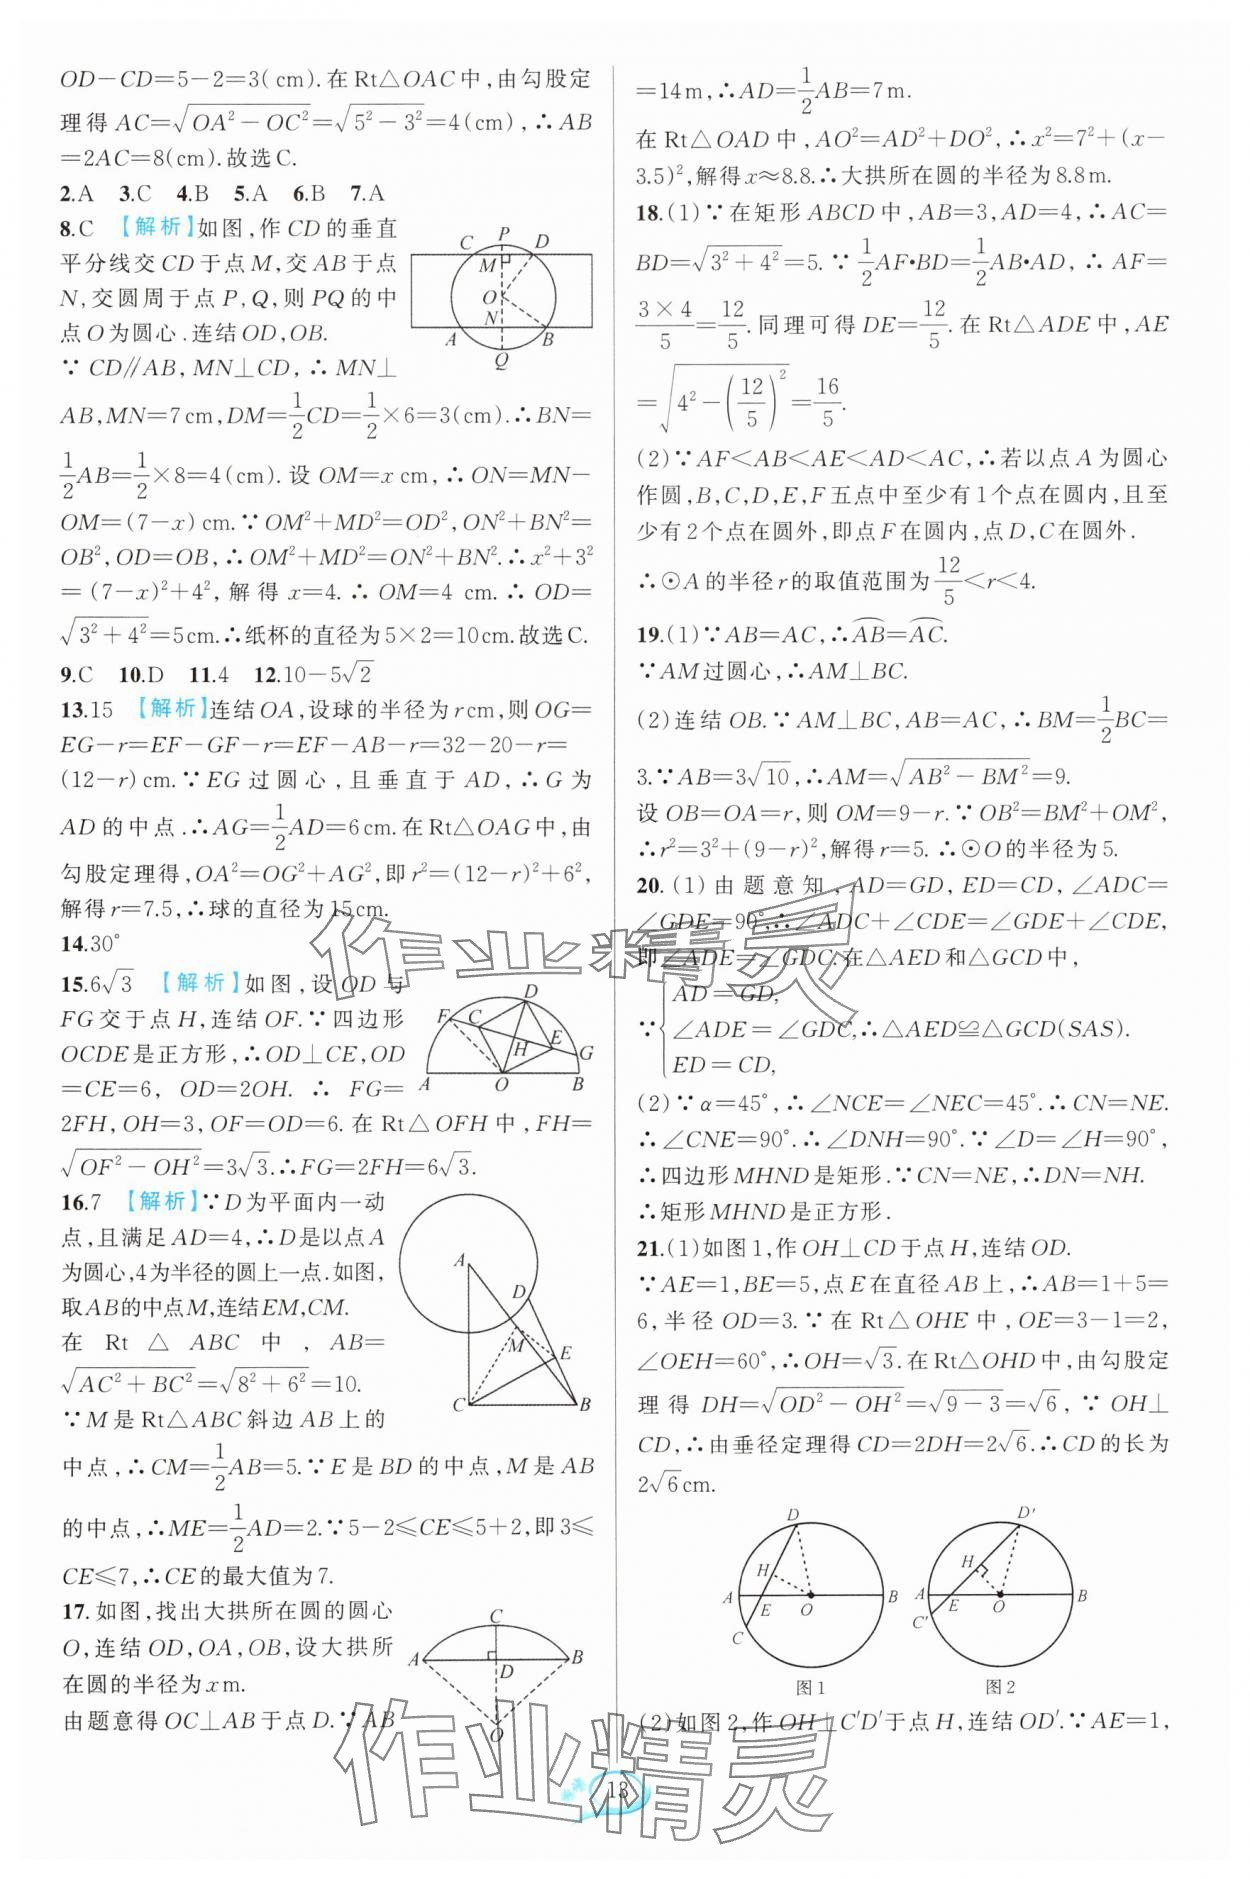 OD−CD=5−2=3(cm).在Rt△OAC中,由勾股定
理得AC=√(OA²−OC²)=√(5²−3²)=4(cm),∴AB
=2AC=8(cm).故选C.
2.A 3.C 4.B 5.A 6.B 7.A
8.C 【解析】如图,作CD的垂直
平分线交CD于点M,交AB于点
N,交圆周于点P,Q,则PQ的中
点O为圆心.连结OD,OB.
∵CD∥AB,MN⊥CD,∴MN⊥
AB,MN=7cm,DM=1/2CD=1/2×6=3(cm).∴BN=
1/2AB=1/2×8=4(cm).设OM=x cm,∴ON=MN−
OM=(7−x)cm.∵OM²+MD²=OD²,ON²+BN²=
OB²,OD=OB,∴OM²+MD²=ON²+BN².∴x²+3²
=(7−x)²+4²,解得x=4.∴OM=4 cm.∴OD=
√(3²+4²)=5cm.∴纸杯的直径为5×2=10cm.故选C.
P
C D
M
O
N
A B
Q
9.C 10.D 11.4 12.10−5√2
13.15 【解析】连结OA,设球的半径为rcm,则OG=
EG−r=EF−GF−r=EF−AB−r=32−20−r=
(12−r)cm.∵EG过圆心,且垂直于AD,∴G为
AD的中点.∴AG=1/2AD=6cm.在Rt△OAG中,由
勾股定理得,OA²=OG²+AG²,即r²=(12−r)²+6²,
解得r=7.5,∴球的直径为15cm.
14.30°
15.6√3 【解析】如图,设OD与
FG交于点H,连结OF.∵四边形
OCDE是正方形,∴OD⊥CE,OD
=CE=6,OD=2OH.∴FG=
2FH,OH=3,OF=OD=6.在Rt△OFH中,FH=
√(OF²−OH²)=3√3.∴FG=2FH=6√3.
D
F C
E
H G
A O B
16.7 【解析】∵D为平面内一动
点,且满足AD=4,∴D是以点A
为圆心,4为半径的圆上一点.如图,
取AB的中点M,连结EM,CM.
在Rt△ABC中,AB=
√(AC²+BC²)=√(8²+6²)=10.
∵M是Rt△ABC斜边AB上的
中点,∴CM=1/2AB=5.∵E是BD的中点,M是AB
的中点,∴ME=1/2AD=2.∵5−2≤CE≤5+2,即3≤
CE≤7,∴CE的最大值为7.
A
D
M
E
C B
17.如图,找出大拱所在圆的圆心
O,连结OD,OA,OB,设大拱所
在圆的半径为x m.
由题意得OC⊥AB于点D.∵AB
C
A B
D
O
=14m,∴AD=1/2AB=7m.
在Rt△OAD中,AO²=AD²+DO²,∴x²=7²+(x−
3.5)²,解得x≈8.8.∴大拱所在圆的半径为8.8m.
18.(1)∵在矩形ABCD中,AB=3,AD=4,∴AC=
BD=√(3²+4²)=5.∵1/2AF•BD=1/2AB•AD,∴AF=
(3×4)/5=12/5.同理可得DE=12/5.在Rt△ADE中,AE
=√(4²−(12/5)²)=16/5.
(2)∵AF<AB<AE<AD<AC,∴若以点A为圆心
作圆,B,C,D,E,F五点中至少有1个点在圆内,且至
少有2个点在圆外,即点F在圆内,点D,C在圆外.
∴⊙A的半径r的取值范围为12/5<r<4.
19.(1)∵AB=AC,∴⌒AB=⌒AC.
∵AM过圆心,∴AM⊥BC.
(2)连结OB.∵AM⊥BC,AB=AC,∴BM=1/2BC=
3.∵AB=3√10,∴AM=√(AB²−BM²)=9.
设OB=OA=r,则OM=9−r.∵OB²=BM²+OM²,
∴r²=3²+(9−r)²,解得r=5.∴⊙O的半径为5.
20.(1)由题意知,AD=GD,ED=CD,∠ADC=
∠GDE=90°,∴∠ADC+∠CDE=∠GDE+∠CDE,
即∠ADE=∠GDC.在△AED和△GCD中,
AD=GD,
∵{∠ADE=∠GDC,∴△AED≌△GCD(SAS).
ED=CD,
(2)∵α=45°,∴∠NCE=∠NEC=45°.∴CN=NE.
∴∠CNE=90°.∴∠DNH=90°.∵∠D=∠H=90°,
∴四边形MHND是矩形.∵CN=NE,∴DN=NH.
∴矩形MHND是正方形.
21.(1)如图1,作OH⊥CD于点H,连结OD.
∵AE=1,BE=5,点E在直径AB上,∴AB=1+5=
6,半径OD=3.∵在Rt△OHE中,OE=3−1=2,
∠OEH=60°,∴OH=√3.在Rt△OHD中,由勾股定
理得DH=√(OD²−OH²)=√(9−3)=√6,∵OH⊥
CD,∴由垂径定理得CD=2DH=2√6.∴CD的长为
2√6cm.
D
H
A E O B
C
图1
D′
H
A E O B
C′
图2
(2)如图2,作OH⊥C′D′于点H,连结OD′.∵AE=1,
作业精灵
作业精灵
13